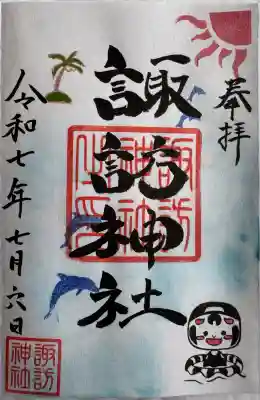 奉拝
諏訪神社
令和七年七月六日
諏訪
神社